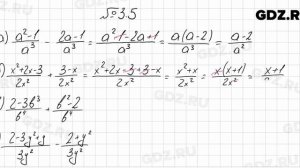 № 3.5
GDZ.RU
а) (a²-1)/a³ - (2a-1)/a³ = (a²-1-2a+1)/a³ = a(a-2)/a³ = (a-2)/a²
(x²+2x-3)/2x² + (3-x)/2x² = (x²+2x-3+3-x)/2x² = (x²+x)/2x² = x(x+1)/2x² = x+1
(2-3b³)/b⁴ + (b²-2)/b⁴
(2-3y²+y)/3y² - (2+y²)/3y²
GDZ.R